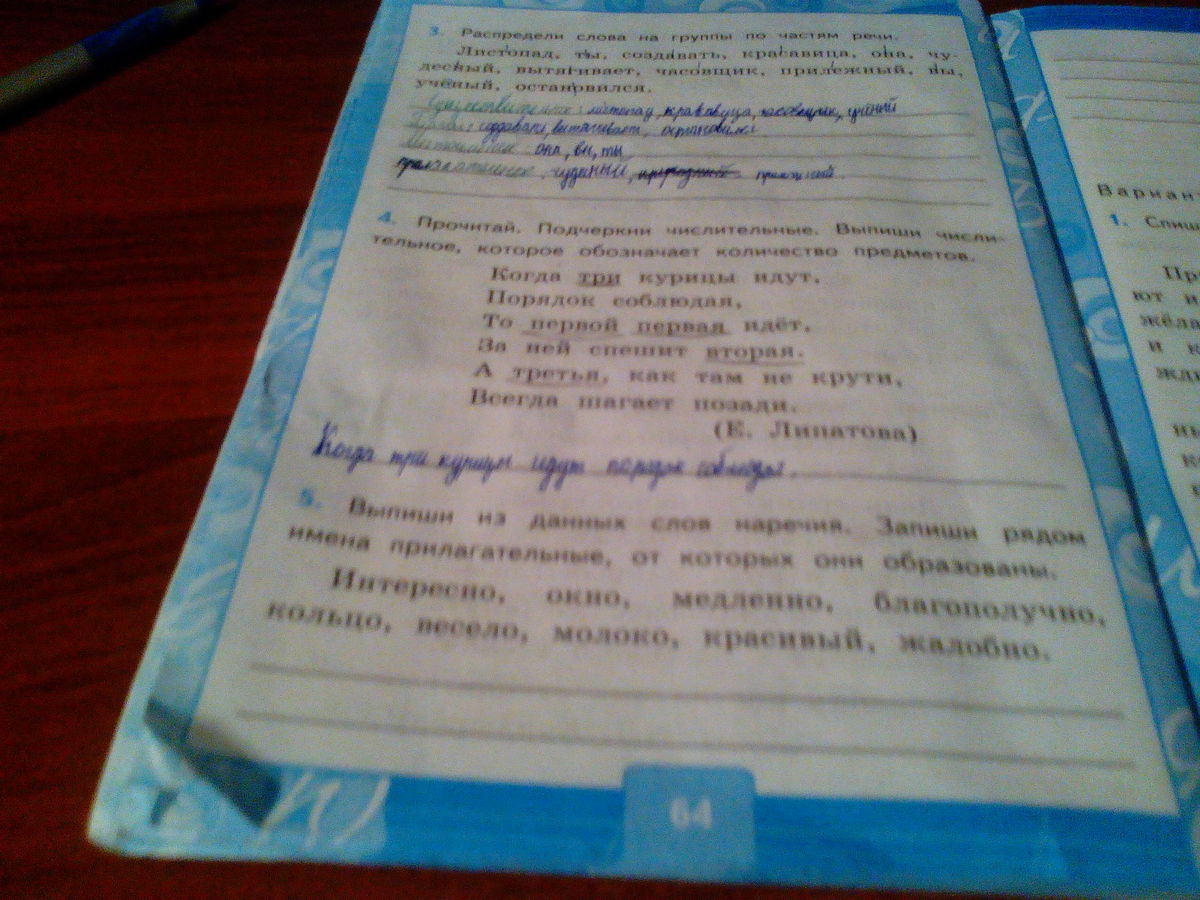 3. Распредели слова на группы по частям речи.
Листопад, ты, создавать, красавица, она, чу-
десный, вытягивает, часовщик, прилежный, вы,
учёный, остановился.
листопад, красавица, часовщик, учёный
она, вы, ты
4. Прочитай. Подчеркни числительные. Выпиши числи-
тельное, которое обозначает количество предметов.
Когда три курицы идут,
Порядок соблюдая,
То первой первая идёт,
За ней спешит вторая.
А третья, как там не крути,
Всегда шагает позади.
(Е. Липатова)
Когда три курицы идут порядок
5. Выпиши из данных слов наречия. Запиши рядом
имена прилагательные, от которых они образованы.
Интересно, окно, медленно, благополучно,
кольцо, весело, молоко, красивый, жалобно.
64
Вариан
1. Спиш
Пр
ют и
жёл
и к
жд